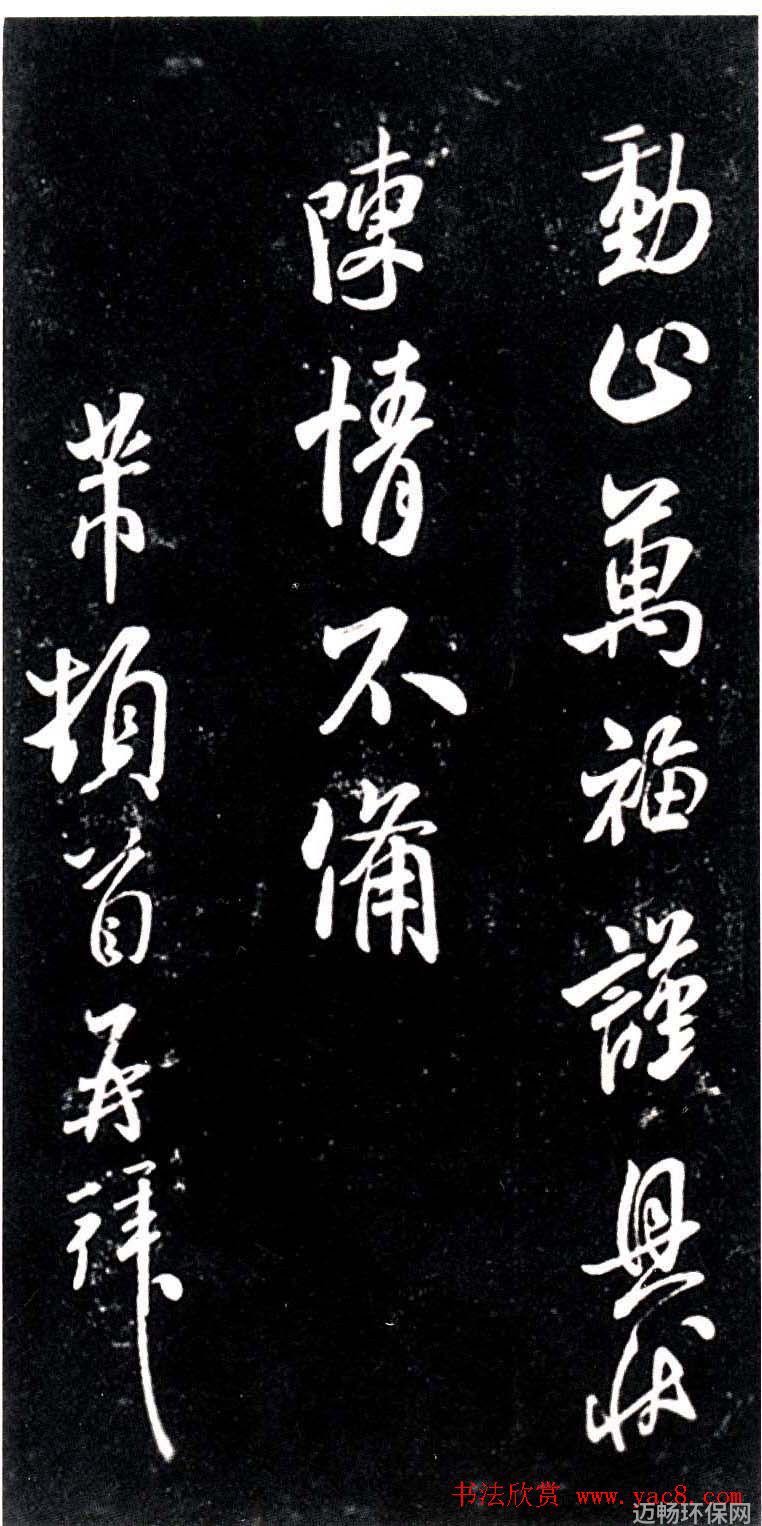 動止萬福謹具狀
陳情不備
芾頓首再拜
书法欣赏 www.yac8.com
迈畅环保网